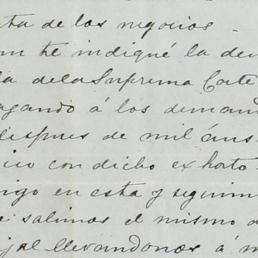 ta de los negocios.
m te indiqué la de
la de la Suprema Corte
agando á los deman
despues de mil áns
ico con dicho exhorto
igo en esta y seguim
e salimos el mismo d
jal llevandonos á m